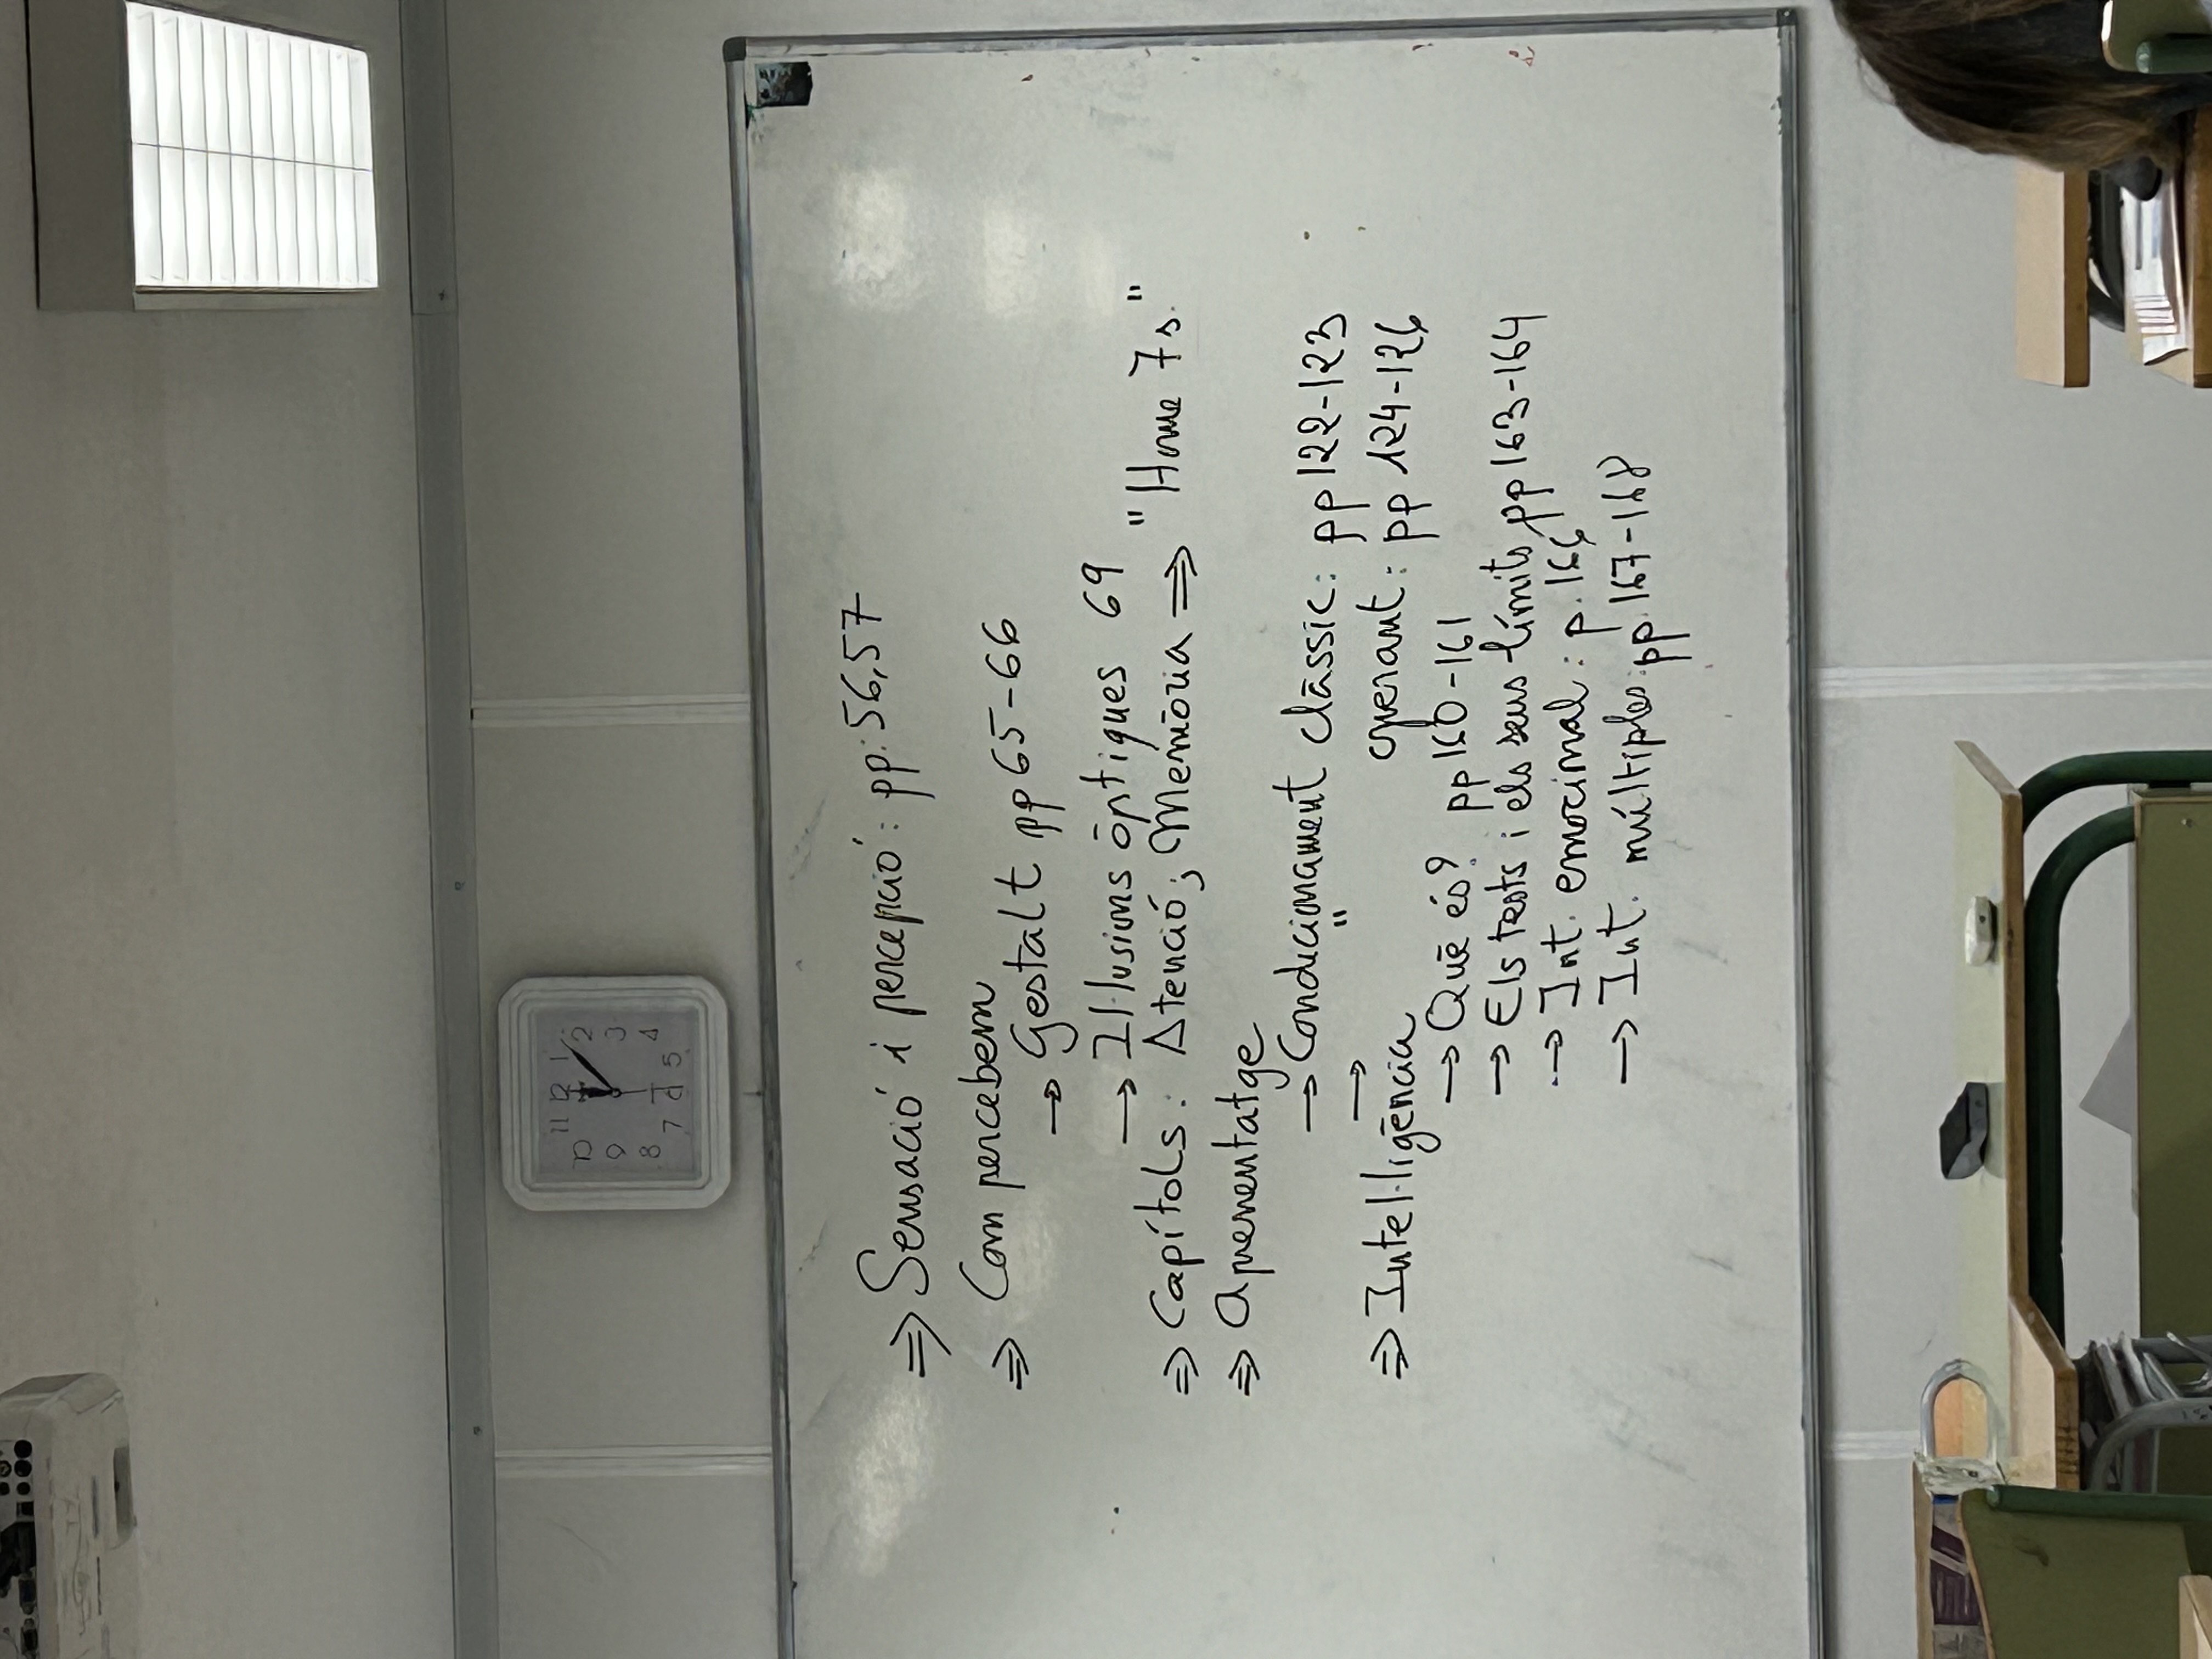 ⇒ Sensació i percepció: pp. 56,57
⇒ Com percebem
→ Gestalt pp 65-66
→ Il·lusions òptiques 69
⇒ Capítols: Atenció; Memòria ⇒ "Home 7s."
⇒ Aprenentatge
→ Condicionament clàssic: pp 122-123
→ " operant: pp 124-126
⇒ Intel·ligència
→ Què és? pp 160-161
→ Els tests i els seus límits pp 163-164
→ Int. emocional: p. 166
→ Int. múltiples: pp. 167-168
11 12 1
10 2
9 3
8 4
7 6 5